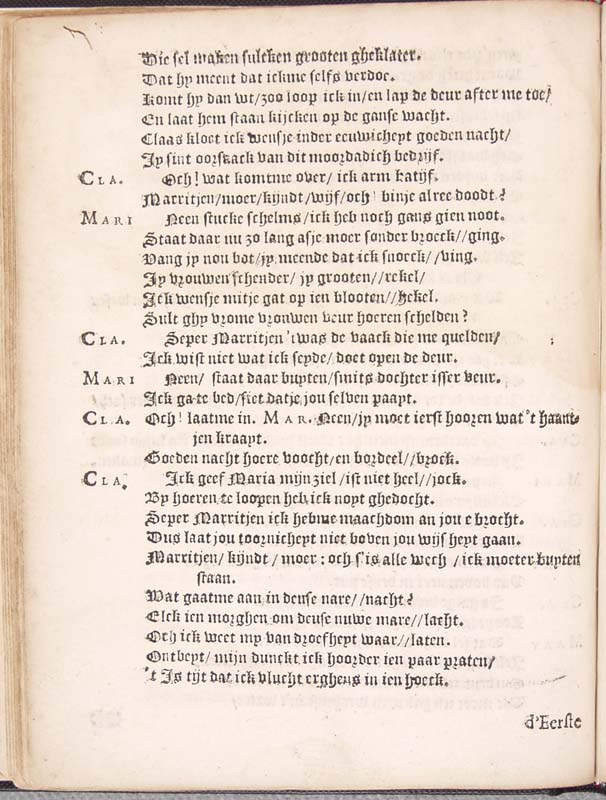 Die sel maken sulcken grooten gheklater.
Dat hy meent dat ickme selfs verdoe.
Komt hy dan wt/zoo loop ick in/en lap de deur after me toe/
En laat hem staan kijcken op de ganse wacht.
Claas kloet ick wensje inder eeuwicheyt goeden nacht/
Jy sint oorsaack van dit moordadich bedrijf.
CLA. Och! wat komtme over/ ick arm katijf.
Marritjen/moer/kijndt/wijf/och! binje alree doodt?
MARI Neen stucke schelms/ick heb noch gans gien noot.
Staat daar nu zo lang asje moer sonder broeck//ging.
Vang jy nou bot/jy meende dat ick snoeck//ving.
Jy vrouwen schender/ jy grooten//rekel/
Ick wensje mitje gat op ien blooten//hekel.
Sult ghy vrome vrouwen veur hoeren schelden?
CLA. Seper Marritjen 't was de vaack die me quelden/
Ick wist niet wat ick seyde/ doet open de deur.
MARI Neen/ staat daar buyten/smits dochter isser veur.
Ick ga te bed/siet datje jou selven paayt.
CLA. Och! laatme in. MAR. Neen/jy moet ierst hooren wat 't haant-
jen kraayt.
Goeden nacht hoere voocht/en bordeel//brock.
CLA. Ick geef Maria mijn ziel/ist niet heel//jock.
By hoeren te loopen heb ick noyt ghedocht.
Seper Marritjen ick hebme maachdom an jou e brocht.
Dus laat jou toornicheyt niet boven jou wijsheyt gaan.
Marritjen/ kijndt / moer: och s'is alle wech / ick moeter buyten
staan.
Wat gaatme aan in deuse nare//nacht?
Elck ien morghen om deuse nuwe mare//lacht.
Och ick weet my van droefheyt waar//laten.
Ontbeyt/ mijn dunckt ick hoorder ien paar praten/
't Is tijt dat ick vlucht erghens in ien hoeck.
d'Eerste